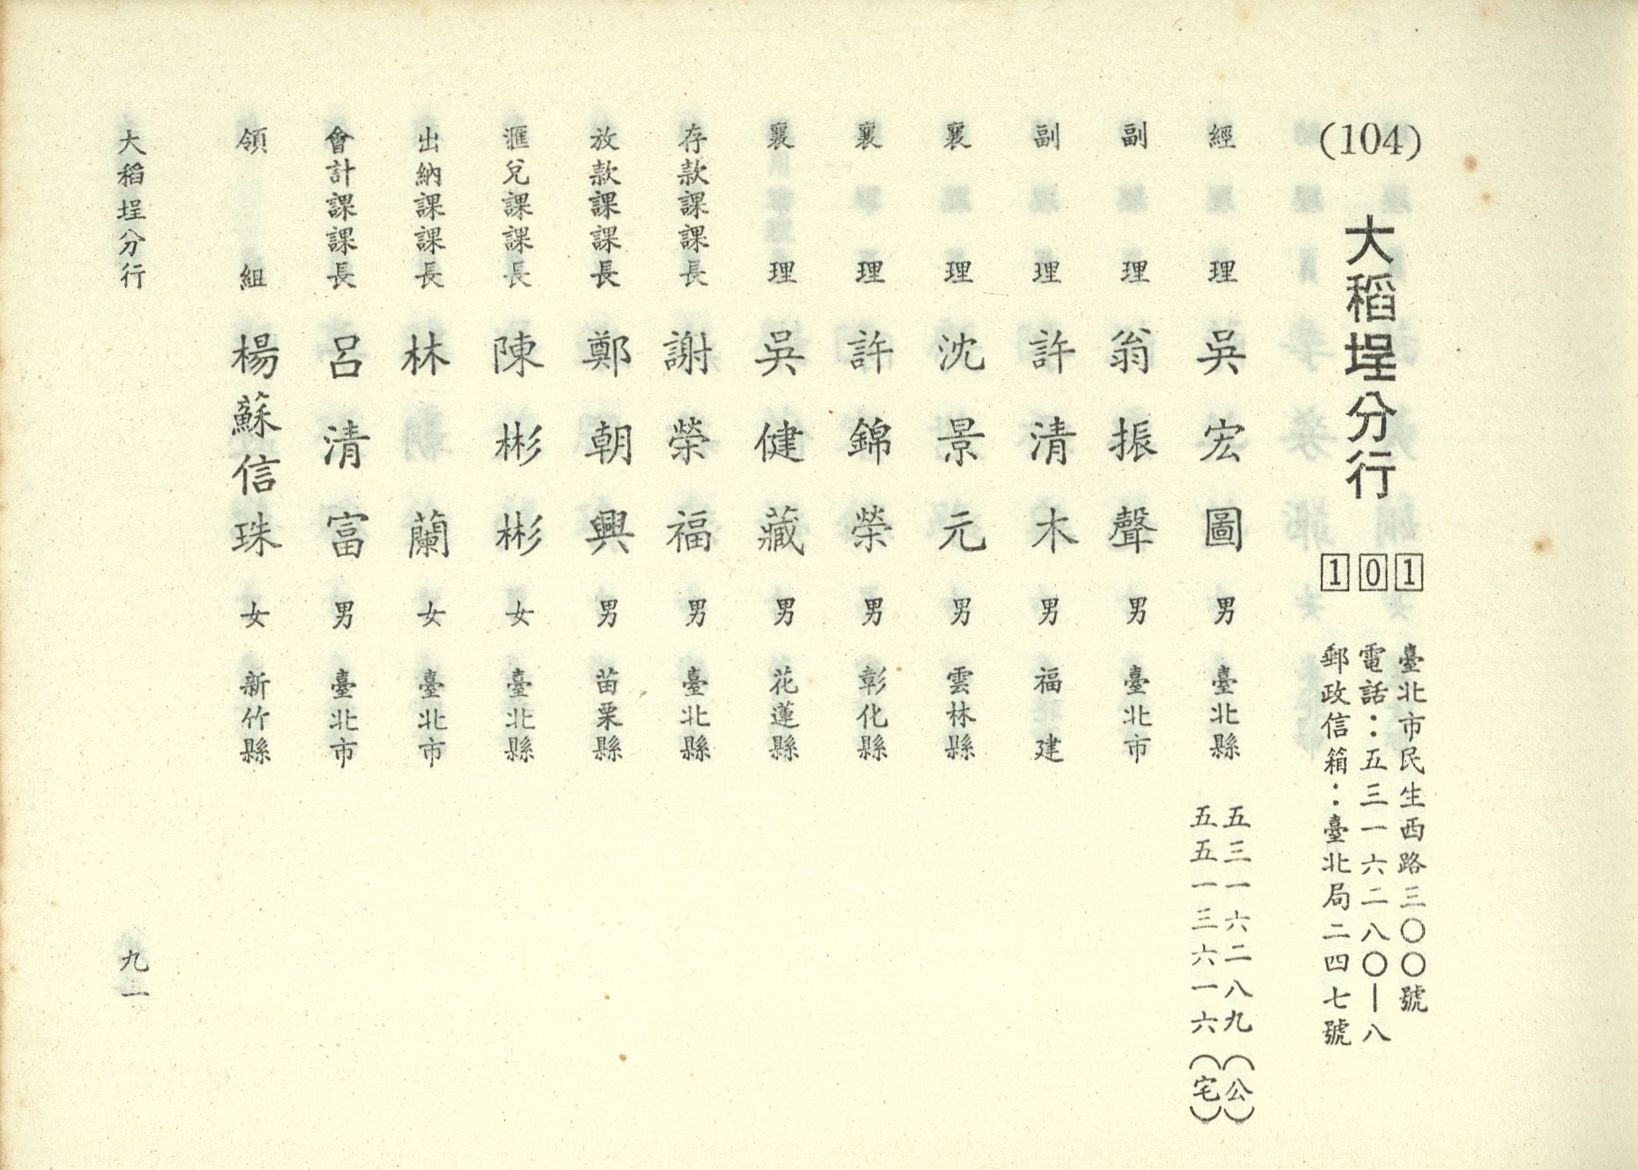 (104)
大稻埕分行
101
臺北市民生西路三〇〇號
電話：五三一六二八〇—八
郵政信箱：臺北局二四七號
經理 吳宏圖 男 臺北縣 五三一六二八九（公）
五五一三六一六（宅）
副理 翁振聲 男 臺北市
副理 許清木 男 福建
襄理 沈景元 男 雲林縣
襄理 許錦榮 男 彰化縣
襄理 吳健藏 男 花蓮縣
存款課課長 謝榮福 男 臺北縣
放款課課長 鄭朝興 男 苗栗縣
滙兌課課長 陳彬彬 女 臺北縣
出納課課長 林蘭 女 臺北市
會計課課長 呂清富 男 臺北市
領組 楊蘇信珠 女 新竹縣
大稻埕分行
九一